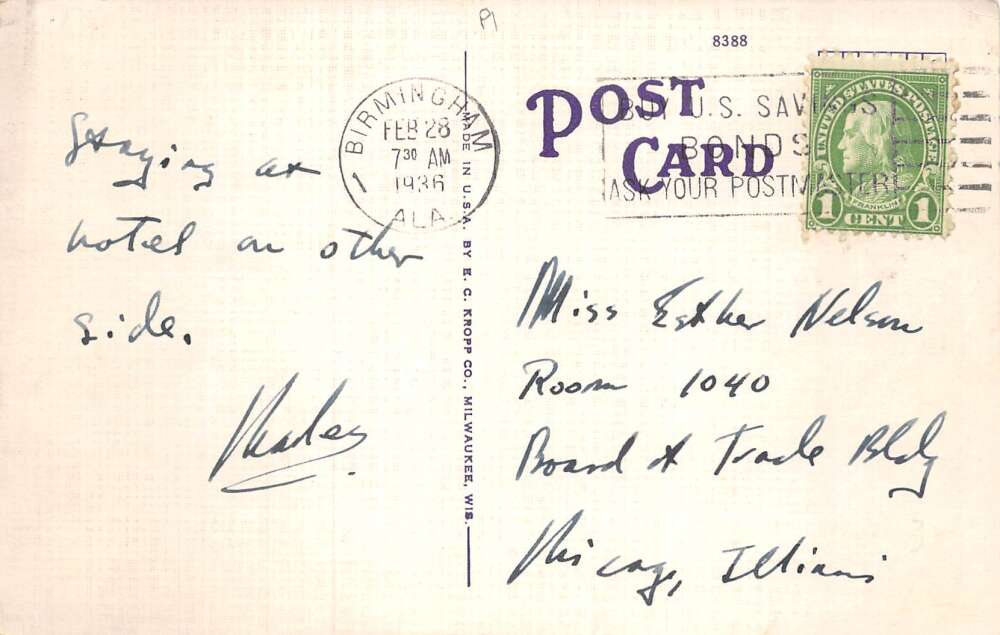 P1
8388
POST
CARD
BIRMINGHAM
FEB 28
7 30 AM
1936
ALA.
1
BUY U.S. SAVINGS
BONDS
ASK YOUR POSTMASTER
UNITED STATES POSTAGE
FRANKLIN
1 CENT 1
Staying at
hotel on other
side.
Charles
MADE IN U.S.A. BY E. C. KROPP CO., MILWAUKEE, WIS.
Miss Esther Nelson
Room 1040
Board of Trade Bldg
Chicago, Illinois